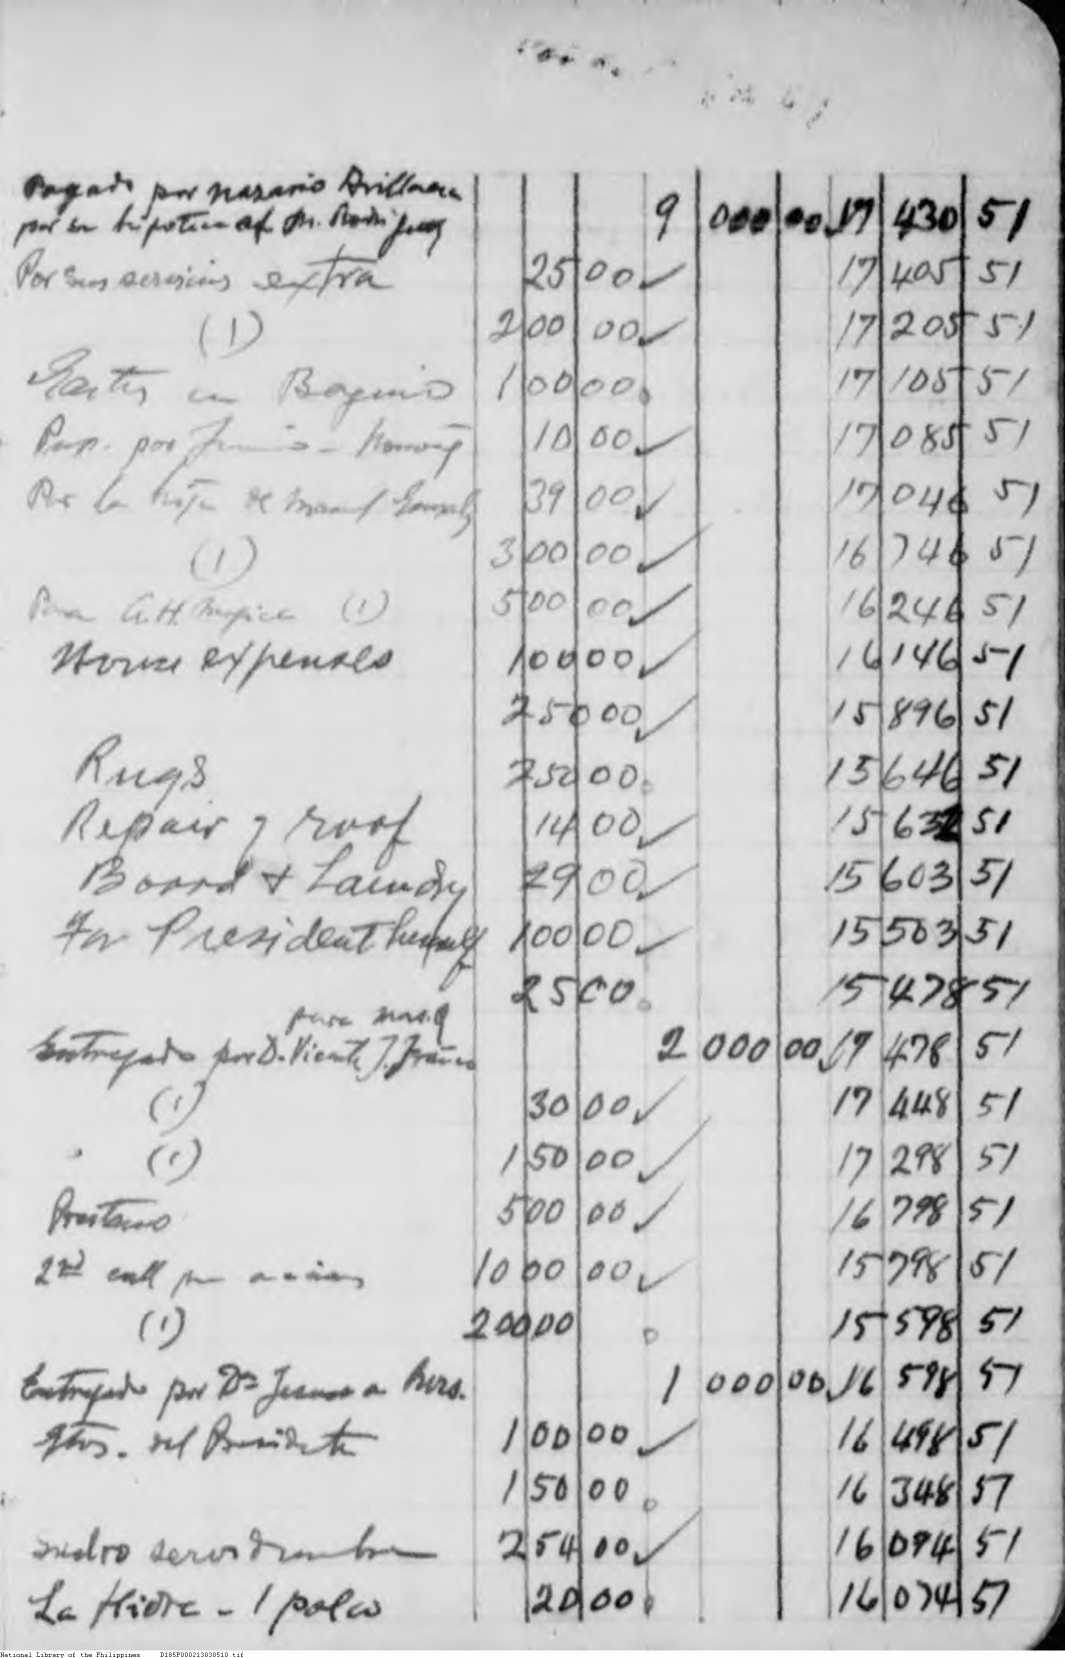 Pagado por Nazario
por su hipoteca
9 000 00 17 430 51
Por sus servicios extra 25 00 ✓ 17 405 51
(1) 200 00 ✓ 17 205 51
Gastos en Baguio 100 00. 17 105 51
por Junio - 10 00 ✓ 17 085 51
Por la hija de Manuel 39 00 ✓ 17 046 51
(1) 300 00 ✓ 16 746 51
Para (1) 500 00 ✓ 16 246 51
House expenses 100 00 ✓ 16 146 51
250 00 ✓ 15 896 51
Rugs 250 00. 15 646 51
Repair of roof 14 00 ✓ 15 632 51
Board & Laundry 29 00 ✓ 15 603 51
For President himself 100 00 ✓ 15 503 51
25 00. 15 478 51
para
Entregado por D. Vicente J. 2 000 00 17 478 51
(1) 30 00 ✓ 17 448 51
(1) 150 00 ✓ 17 298 51
Prestamo 500 00 ✓ 16 798 51
2nd call 1000 00 ✓ 15 798 51
(1) 200 00 15 598 51
Entregado por 1 000 00 16 598 51
gtos. del Presidente 100 00 ✓ 16 498 51
150 00. 16 348 51
servidumbre 254 00 ✓ 16 094 51
La - 1 palco 20 00. 16 074 51
National Library of the Philippines D185P000213830510.tif